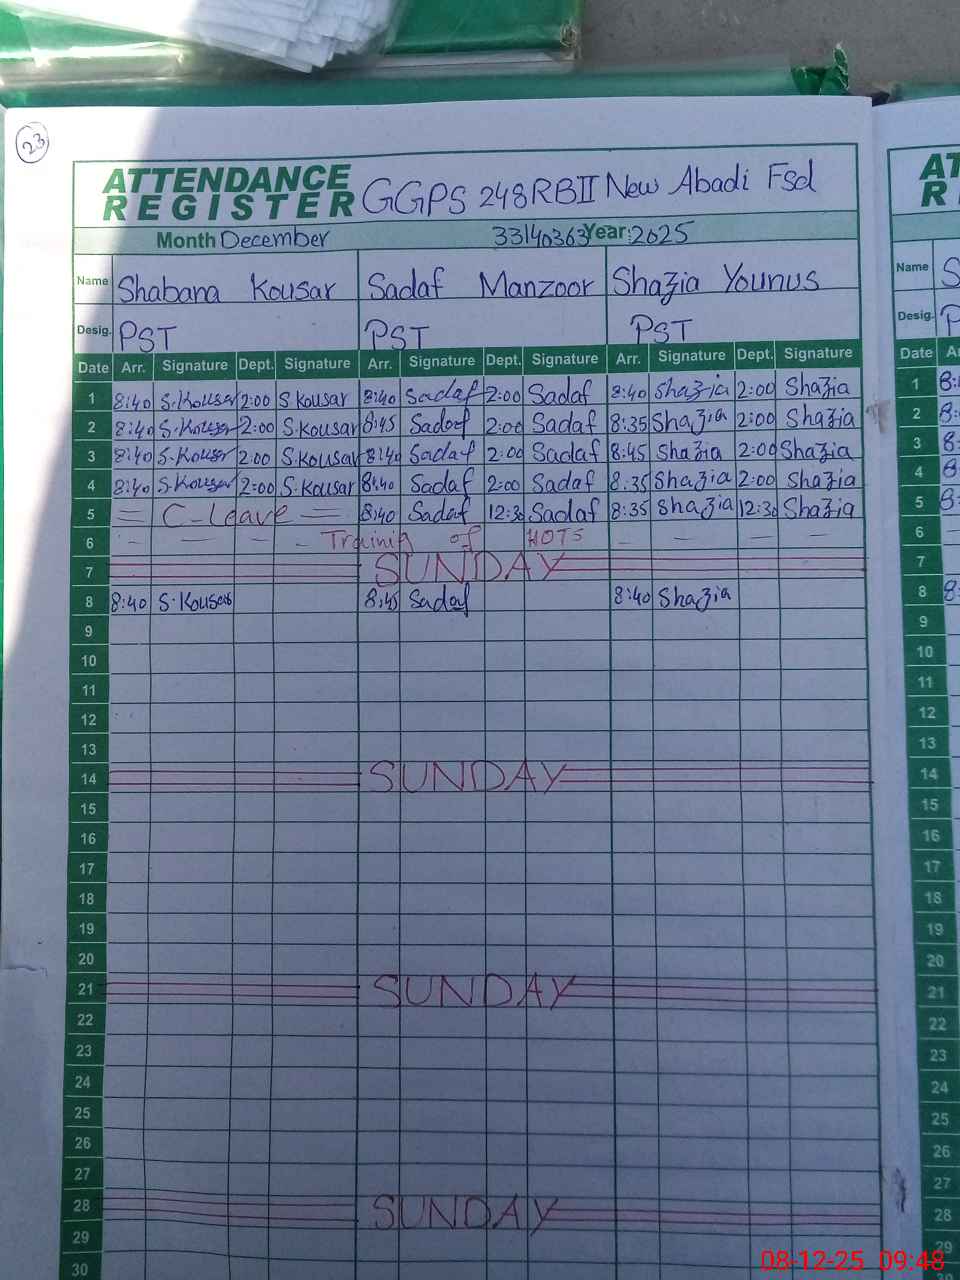 23
ATTENDANCE REGISTER GGPS 248RBII New Abadi Fsd
Month December 33140363 Year: 2025
Name Shabana Kousar Sadaf Manzoor Shazia Younus
Desig. PST PST PST
Date Arr. Signature Dept. Signature Arr. Signature Dept. Signature Arr. Signature Dept. Signature
1 8:40 S.Kousar 2:00 S Kousar 8:40 Sadaf 2:00 Sadaf 8:40 Shazia 2:00 Shazia
2 8:40 S.Kousar 2:00 S.Kousar 8:45 Sadaf 2:00 Sadaf 8:35 Shazia 2:00 Shazia
3 8:40 S.Kousar 2:00 S.Kousar 8:40 Sadaf 2:00 Sadaf 8:45 Shazia 2:00 Shazia
4 8:40 S.Kousar 2:00 S.Kousar 8:40 Sadaf 2:00 Sadaf 8:35 Shazia 2:00 Shazia
5 = C-Leave = 8:40 Sadaf 12:30 Sadaf 8:35 Shazia 12:30 Shazia
6 - - - - Training of HOTS - - - -
7 SUNDAY
8 8:40 S.Kousar 8:45 Sadaf 8:40 Shazia
9
10
11
12
13
14 SUNDAY
15
16
17
18
19
20
21 SUNDAY
22
23
24
25
26
27
28 SUNDAY
29
30
AT
R
Name S
Desig. P
Date A
1 8:
2 8:
3 8:
4 8:
5 8:
6 -
7
8 8:
9
10
11
12
13
14
15
16
17
18
19
20
21
22
23
24
25
26
27
28
29
30
08-12-25 09:48